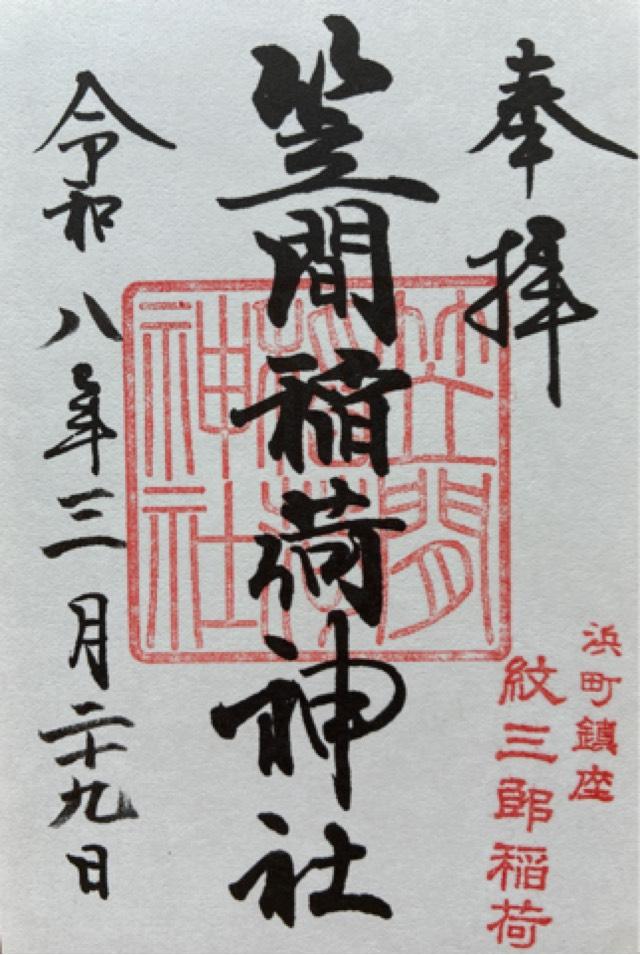 奉拝
笠間稲荷神社
笠間稲荷神社
令和八年三月二十九日
浜町鎮座
紋三郎稲荷